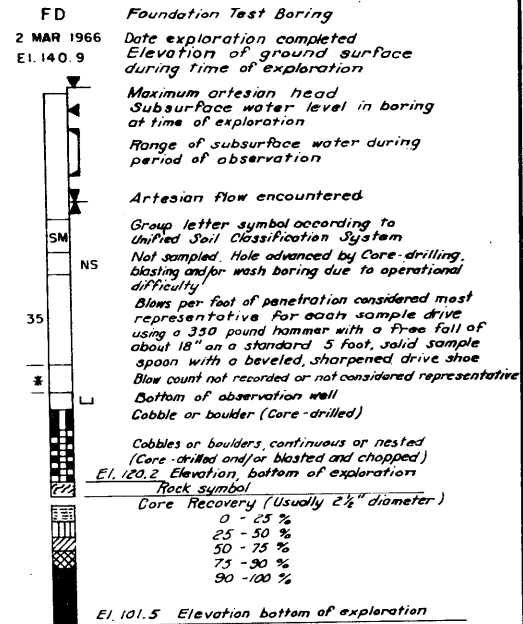 FD Foundation Test Boring
2 MAR 1966 Date exploration completed
El. 140.9 Elevation of ground surface
during time of exploration
Maximum artesian head
Subsurface water level in boring
at time of exploration
Range of subsurface water during
period of observation
Artesian flow encountered
Group letter symbol according to
SM Unified Soil Classification System
NS Not sampled. Hole advanced by Core-drilling,
blasting and/or wash boring due to operational
difficulty
Blows per foot of penetration considered most
35 representative for each sample drive
using a 350 pound hammer with a free fall of
about 18" on a standard 5 foot, solid sample
spoon with a beveled, sharpened, drive shoe
* Blow count not recorded or not considered representative
Bottom of observation well
Cobble or boulder (Core-drilled)
Cobbles or boulders, continuous or nested
(Core-drilled and/or blasted and chopped)
El. 120.2 Elevation, bottom of exploration
Rock symbol
Core Recovery (Usually 2½" diameter)
0 - 25 %
25 - 50 %
50 - 75 %
75 - 90 %
90 - 100 %
El. 101.5 Elevation bottom of exploration